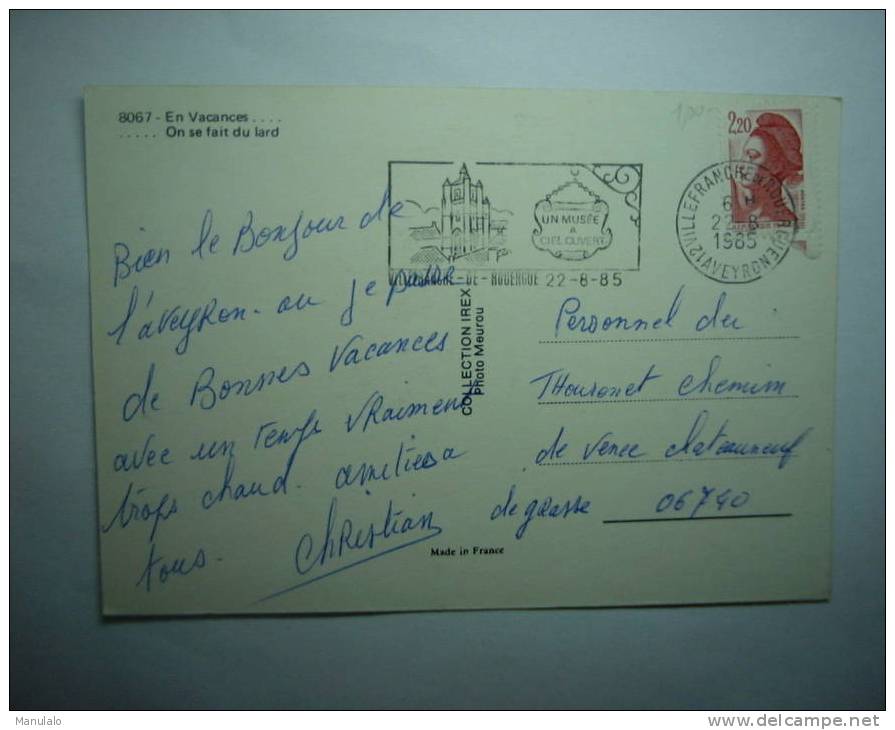 8067 - En Vacances . . . .
. . . . . On se fait du lard
2,20
UN MUSÉE
A
CIEL OUVERT
VILLEFRANCHE-DE-ROUERGUE 22-8-85
VILLEFRANCHE DE ROUERGUE
6 H
22-8
1985
(12) AVEYRON
Bien le Bonjour de
l'aveyron - ou je passe
de Bonnes Vacances
avec un temps vraiment
trops chaud. amitiés a
tous.
Christian
COLLECTION IREX
Photo Mourou
Personnel du
Thouronet Chemin
de Vence Chateauneuf
de grasse 06740
Made in France
Manulalo
www.delcampe.net